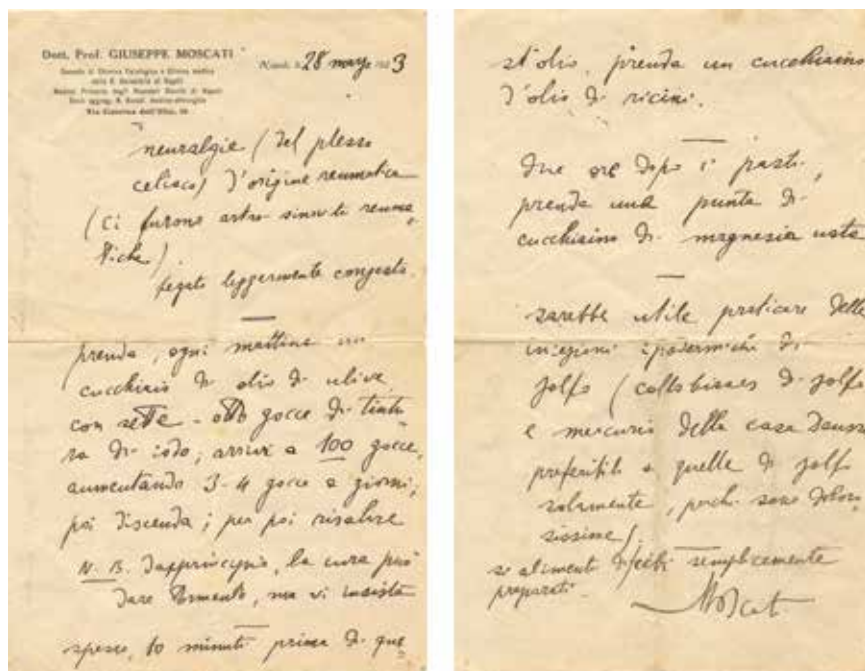 Dott. Prof. GIUSEPPE MOSCATI
Napoli, 28 1923
Via Cisterna dell'Olio, 10
neuralgie (del plesso
celiaco) d'origine reumatica
(ci furono artro sinoviti reuma
tiche)
fegato leggermente congesto.
prenda, ogni mattina un
cucchiaio di olio di ulive
con sette-otto gocce di tintu
ra di iodo; arrivi a 100 gocce,
aumentando 3-4 gocce a giorni,
poi discenda; per poi risalire
N.B. Dapprincipio, la cura può
dare tormento, ma vi insista
spesso, 10 minuti prima di que
st'olio, prenda un cucchiaino
d'olio di ricini.
due ore dopo i pasti,
prenda una punta di
cucchiaino di magnesia usta
sarebbe utile praticare delle
iniezioni ipodermiche di
solfo (collobiases di solfo
e mercurio della casa Dausse
preferibili a quelle di solfo
solamente, perché sono doloro
sissime).
si alimenti di cibi semplicemente
preparati.
Moscati